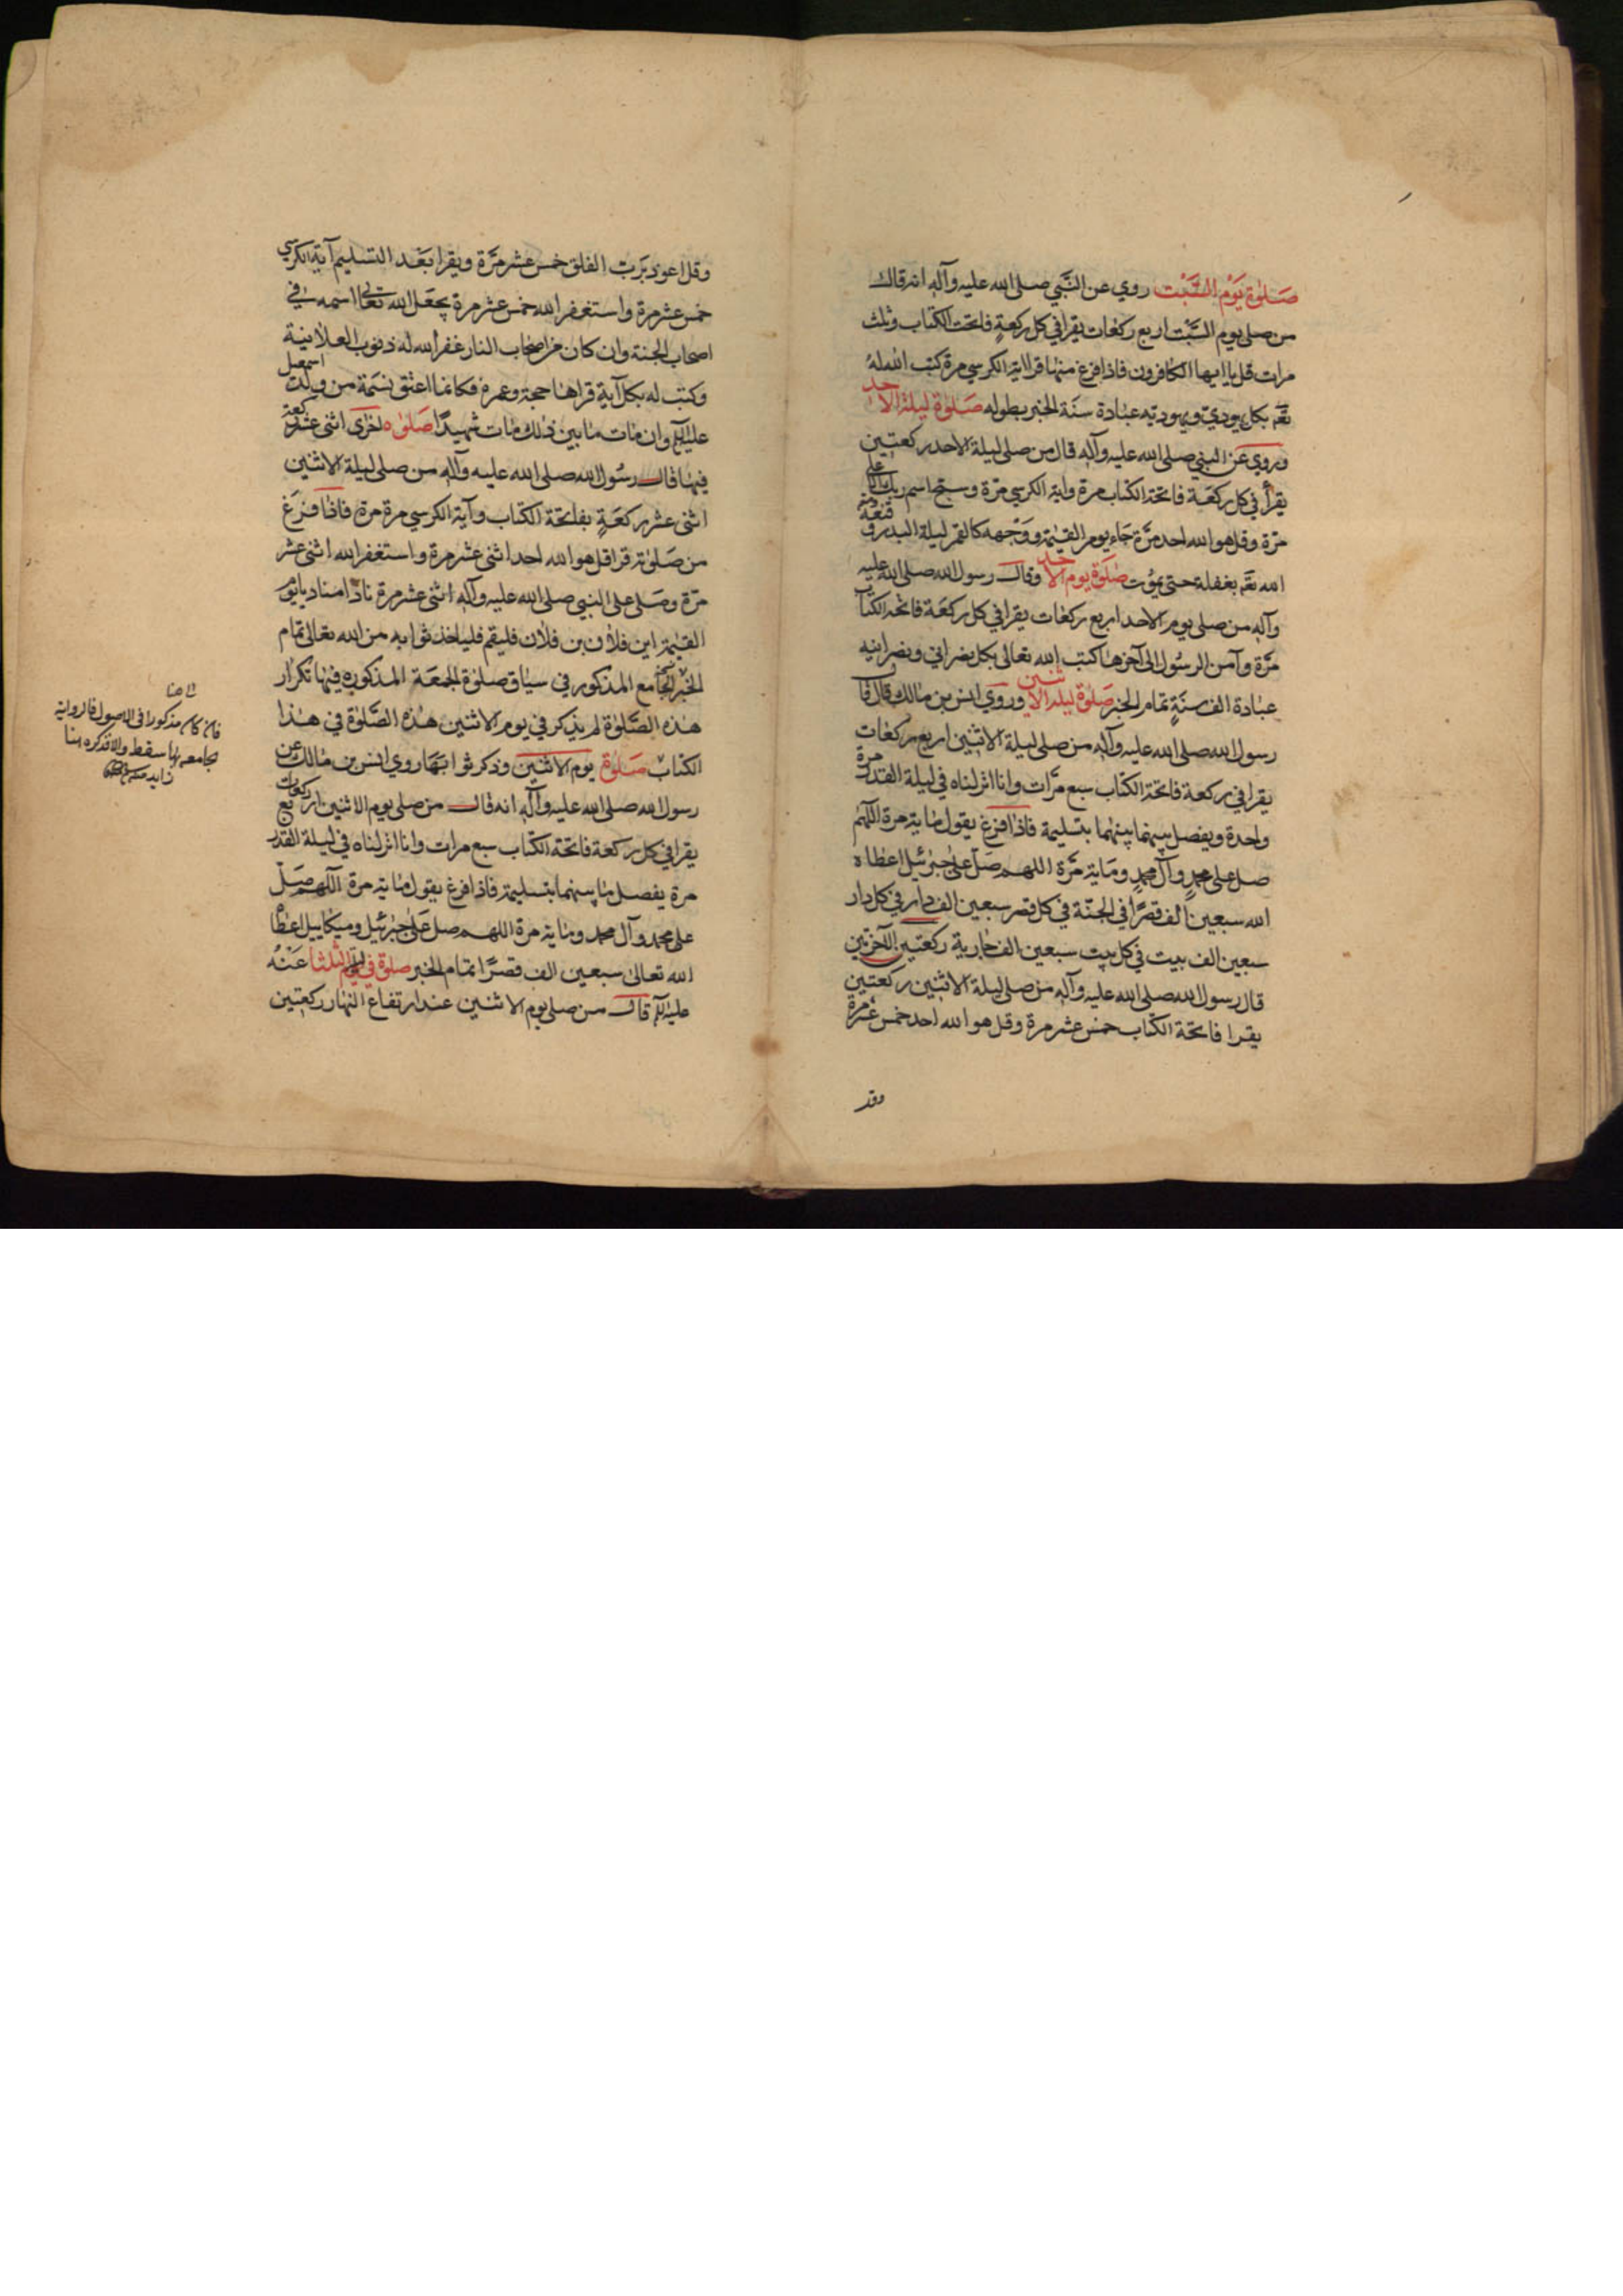 صلوة يوم السبت روي عن النبي صلى الله عليه وآله انه قال
من صلى يوم السبت اربع ركعات يقرا في كل ركعة فاتحت الكتاب وثلث
مرات قل يا ايها الكافرون فاذا فرغ منها قرا اية الكرسي مرة كتب الله له
بكل يهودي ويهودية عبادة سنة الخبر بطوله صلوة ليلة الاحد
وروي عن النبي صلى الله عليه وآله قال من صلى ليلة الاحد ركعتين
يقرأ في كل ركعة فاتحة الكتاب مرة واية الكرسي مرة وسبح اسم ربك الاعلى
مرة وقل هو الله احد مرة جاء يوم القيمة ووجهه كالقمر ليلة البدر
الله بعقله حتى يموت صلوة يوم الاحد وقال رسول الله صلى الله عليه
وآله من صلى يوم الاحد اربع ركعات يقرا في كل ركعة فاتحة الكتاب
مرة وآمن الرسول الى آخرها كتب الله تعالى بكل نصراني ونصرانيه
عبادة الف سنة تمام الخبر صلوة ليلة الاثنين وروي انس بن مالك قال قا
رسول الله صلى الله عليه وآله من صلى ليلة الاثنين اربع ركعات
يقرا في ركعة فاتحة الكتاب سبع مرات وانا انزلناه في ليلة القدر مرة
واحدة ويفصل بينهما بينهما بتسليمة فاذا فرغ يقول ماية مرة اللهم
صل على محمد وآل محمد وماية مرة اللهم صل على جبرئيل اعطاه
الله سبعين الف قصرا في الجنة في كل قصر سبعين الف دار في كل دار
سبعين الف بيت في كل بيت سبعين الف جارية ركعتين آخرتين
قال رسول الله صلى الله عليه وآله من صلى ليلة الاثنين ركعتين
يقرا فاتحة الكتاب خمس عشر مرة وقل هو الله احد خمس عشر مرة
وقد
وقل اعوذ برب الفلق خمس عشر مرة ويقرا بعد التسليم آية الكرسي
خمس عشر مرة واستغفر الله خمس عشر مرة يجعل الله تعالى اسمه في
اصحاب الجنة وان كان من اصحاب النار غفر الله له ذنوب العلانية
وكتب له بكل آية قراها حجة وعمرة فكانما اعتق نسمة من ولد اسمعيل
عليه السلم وان مات ما بين ذلك مات شهيدا صلوه اخرى اثنى عشر ركعة
فيها قال رسول الله صلى الله عليه وآله من صلى ليلة الاثنين
اثنى عشر ركعة بفاتحة الكتاب وآية الكرسي مرة مرة فاذا فرغ
من صلوته قرا قل هو الله احد اثنى عشر مرة واستغفر الله اثنى عشر
مرة وصلى على النبي صلى الله عليه وآله اثنى عشر مرة نادا مناد يا يوم
القيمة اين فلان بن فلان فليقم فلياخذ ثوابه من الله تعالى تمام
الخبر الجامع المذكور في سياق صلوة الجمعة المذكوره فيها تكرار
هذه الصلوة لم يذكر في يوم الاثنين هذه الصلوة في هذا
الكتاب صلوة يوم الاثنين وذكر ثوابها روي انس بن مالك عن
رسول الله صلى الله عليه وآله انه قال من صلى يوم الاثنين اربع ركعات
يقرا في كل ركعة فاتحة الكتاب سبع مرات وانا انزلناه في ليلة القدر
مرة يفصل ما بينهما بتسليمة فاذا فرغ يقول ماية مرة اللهم صل
على محمد وآل محمد وماية مرة اللهم صل على جبرئيل وميكاييل اعطا
الله تعالى سبعين الف قصرا تمام الخبر صلوة في الثلثا عنه
عليه السلم قال من صلى يوم الاثنين عند ارتفاع النهار ركعتين
فان كان مذكورا في الاصول فالرواية
جامعة سقط والا فذكره هنا
زايد